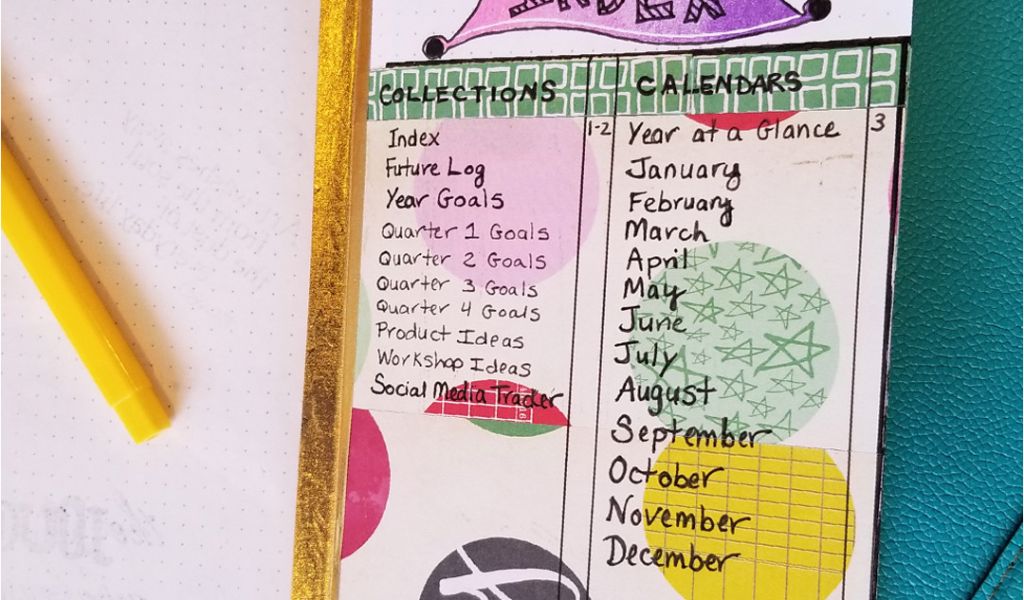 INDEX
COLLECTIONS
Index 1-2
Future Log
Year Goals
Quarter 1 Goals
Quarter 2 Goals
Quarter 3 Goals
Quarter 4 Goals
Product Ideas
Workshop Ideas
Social Media Tracker
CALENDARS
Year at a Glance 3
January
February
March
April
May
June
July
August
September
October
November
December